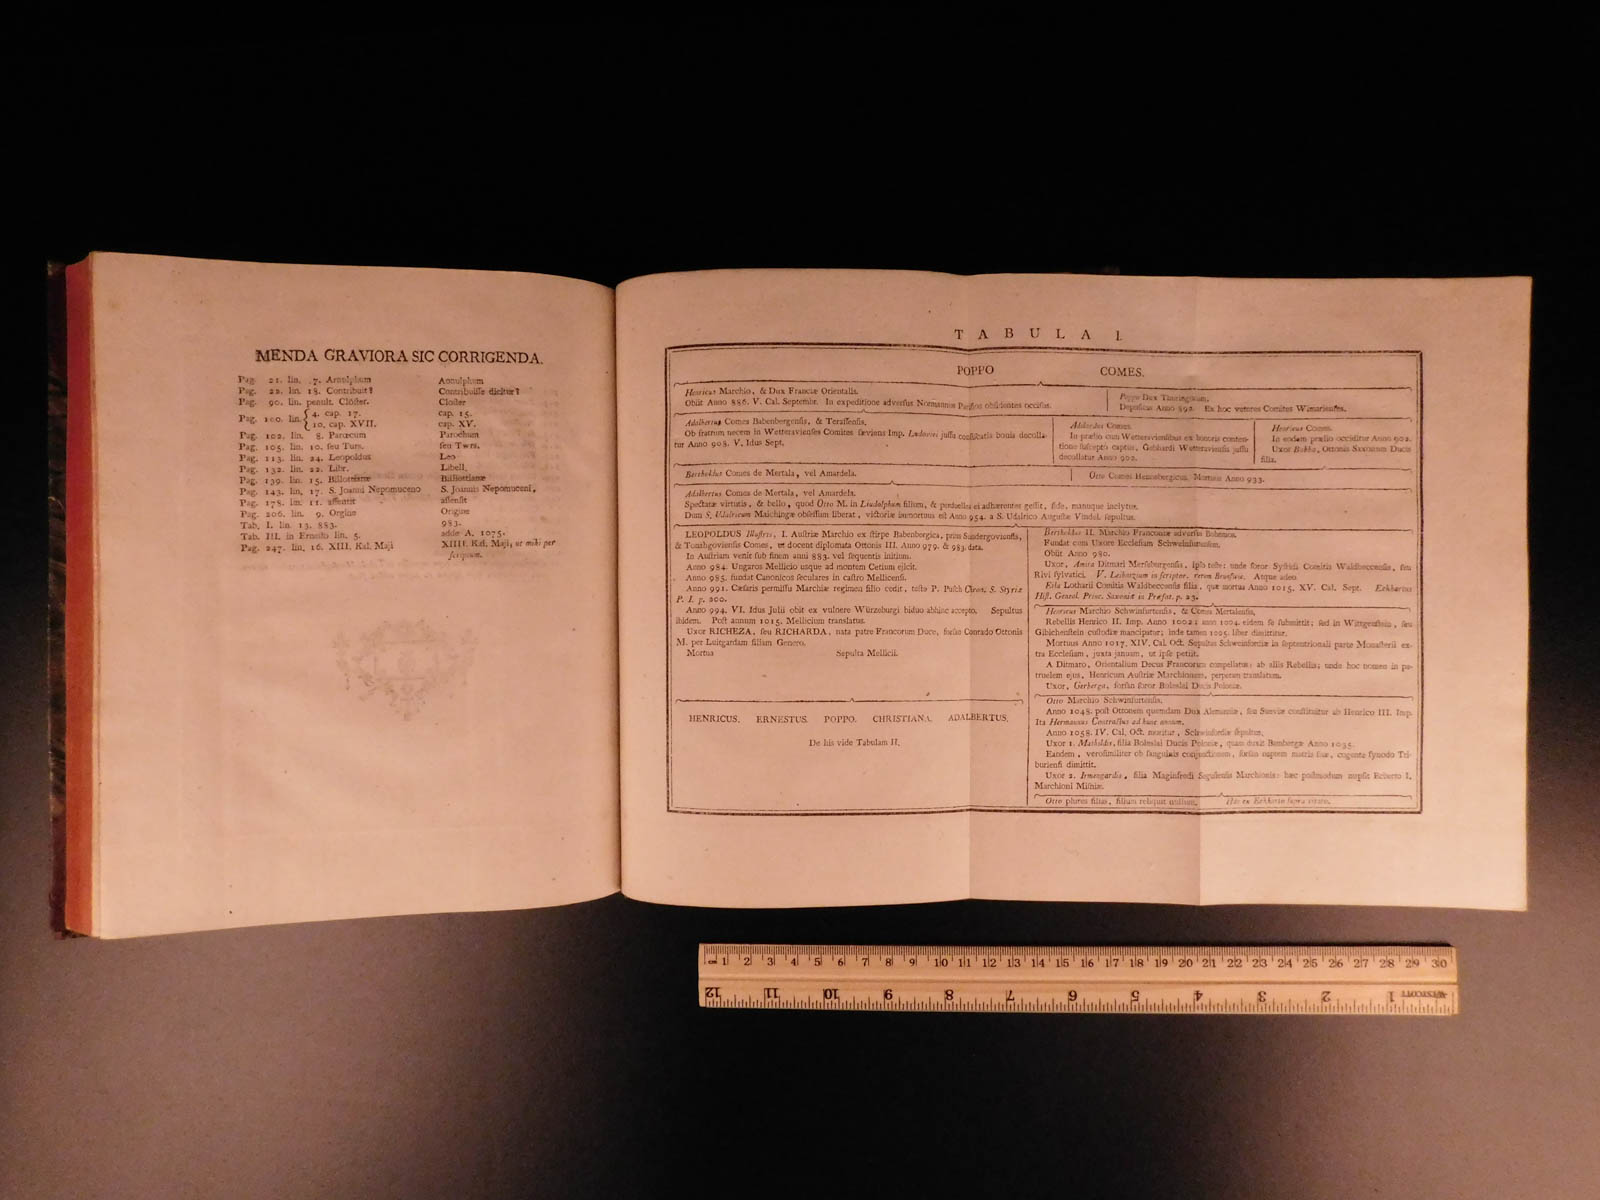 MENDA GRAVIORA SIC CORRIGENDA.
Pag. 21. lin. 7. Arnulphum Annulphum
Pag. 22. lin. 18. Contribuit? Contribuisse dicitur?
Pag. 90. lin. penult. Clöster. Closter
Pag. 100. lin. { 4. cap. 17. cap. 15.
10. cap. XVII. cap. XV.
Pag. 102. lin. 8. Parœcum Parochum
Pag. 105. lin. 10. seu Turs. seu Twrs.
Pag. 113. lin. 24. Leopoldus Leo
Pag. 132. lin. 22. Libr. Libell.
Pag. 139. lin. 15. Billottianæ Billiottianæ
Pag. 143. lin. 17. S. Joanni Nepomuceno S. Joannis Nepomuceni,
Pag. 178. lin. 11. assentit assensit
Pag. 206. lin. 9. Orgine Origine
Tab. I. lin. 13. 883. 983.
Tab. III. in Ernesto lin. 5. adde A. 1075.
Pag. 247. lin. 16. XIII. Kal. Maji XIIII. Kal. Maji, ut mihi per
scriptum.
TABULA I.
POPPO COMES.
Henricus Marchio, & Dux Franciæ Orientalis.
Obiit Anno 886. V. Cal. Septembr. In expeditione adversus Normannos Parisios obsidentes occisus.
Poppo Dux Thuringorum,
Depositus Anno 892. Ex hoc veteres Comites Wimarienses.
Adalbertus Comes Babenbergensis, & Terassensis.
Ob fratrum necem in Wetteravienses Comites sæviens Imp. Ludovici jussu confiscatis bonis decolla-
tur Anno 908. V. Idus Sept.
Adelardus Comes.
In prælio cum Wetteraviensibus ex honoris conten-
tione suscepto captus, Gebhardi Wetteraviensis jussu
decollatur Anno 902.
Henricus Comes.
In eodem prælio occiditur Anno 902.
Uxor Babbo, Ottonis Saxonum Ducis
filia.
Bertholdus Comes de Mertala, vel Amardela.
Otto Comes Hennebergicus. Mortuus Anno 933.
Adalbertus Comes de Mertala, vel Amardela.
Spectatæ virtutis, & bello, quod Otto M. in Liudolphum filium, & perduelles ei adhærentes gessit, fide, manuque inclytus.
Dum S. Udalricum Maichingæ obsessum liberat, victoriæ immortuus est Anno 954. a S. Udalrico Augustæ Vindel. sepultus.
LEOPOLDUS Illustris, I. Austriæ Marchio ex stirpe Babenbergica, prius Sundergoviensis,
& Tonahgoviensis Comes, ut docent diplomata Ottonis III. Anno 979. & 983. data.
In Austriam venit sub finem anni 883. vel sequentis initium.
Anno 984. Ungaros Mellicio usque ad montem Cetium ejicit.
Anno 985. fundat Canonicos seculares in castro Mellicensi.
Anno 991. Cæsaris permissu Marchiæ regimen filio cedit, teste P. Pusch Chron. S. Styriæ
P. I. p. 200.
Anno 994. VI. Idus Julii obit ex vulnere Würzeburgi biduo abhinc accepto. Sepultus
ibidem. Post annum 1015. Mellicium translatus.
Uxor RICHEZA, seu RICHARDA, nata patre Francorum Duce, forsan Conrado Ottonis
M. per Luitgardam filiam Genero.
Mortua Sepulta Mellicii.
HENRICUS. ERNESTUS. POPPO. CHRISTIANA. ADALBERTUS.
De his vide Tabulam II.
Bertholdus II. Marchio Franconiæ adversus Bohemos.
Fundat cum Uxore Ecclesiam Schweinfurtensem.
Obiit Anno 980.
Uxor, Amira Ditmari Mersburgensis, ipso teste: unde soror Syfridi Comitis Waldbeccensis, seu
Rivi sylvatici. V. Leibnizium in scriptor. rerum Brunsuic. Atque adeo
Eila Lotharii Comitis Waldbeccensis filia, quæ mortua Anno 1015. XV. Cal. Sept. Eckhartus
Hist. Geneal. Princ. Saxoniæ in Præfat. p. 23.
Henricus Marchio Schwinfurtensis, & Comes Mertalensis,
Rebellis Henrico II. Imp. Anno 1002; anno 1004. eidem se submittit; sed in Wittgenstein, seu
Gibichenstein custodiæ mancipatur; inde tamen 1005. liber dimittitur.
Mortuus Anno 1017. XIV. Cal. Oct. Sepultus Schweinfordiæ in septentrionali parte Monasterii ex-
tra Ecclesiam, juxta januam, ut ipse petiit.
A Ditmaro, Orientalium Decus Francorum compellatus: ab aliis Rebellis; unde hoc nomen in pa-
truelem ejus, Henricum Austriæ Marchionem, perperam translatum.
Uxor, Gerberga, forsan soror Boleslai Ducis Poloniæ.
Otto Marchio Schwinfurtensis.
Anno 1048. post Ottonem quemdam Dux Alemanniæ, seu Sueviæ constituitur ab Henrico III. Imp.
Ita Hermannus Contractus ad hunc annum.
Anno 1058. IV. Cal. Oct. moritur, Schwinfordiæ sepultus.
Uxor 1. Mathildis, filia Boleslai Ducis Poloniæ, quam duxit Bambergæ Anno 1035.
Eandem, verosimiliter ob sanguinis conjunctionem, forsan neptem matris suæ, cogente synodo Tri-
buriensi dimittit.
Uxor 2. Irmengardis, filia Maginfredi Segusensis Marchionis: hæc postmodum nupsit Ecberto I.
Marchioni Misniæ.
Otto plures filias, filium reliquit nullum. Hæc ex Eckharto supra citato.
cm 1 2 3 4 5 6 7 8 9 10 11 12 13 14 15 16 17 18 19 20 21 22 23 24 25 26 27 28 29 30
12 11 10 9 8 7 6 5 4 3 2 1 WESTCOTT